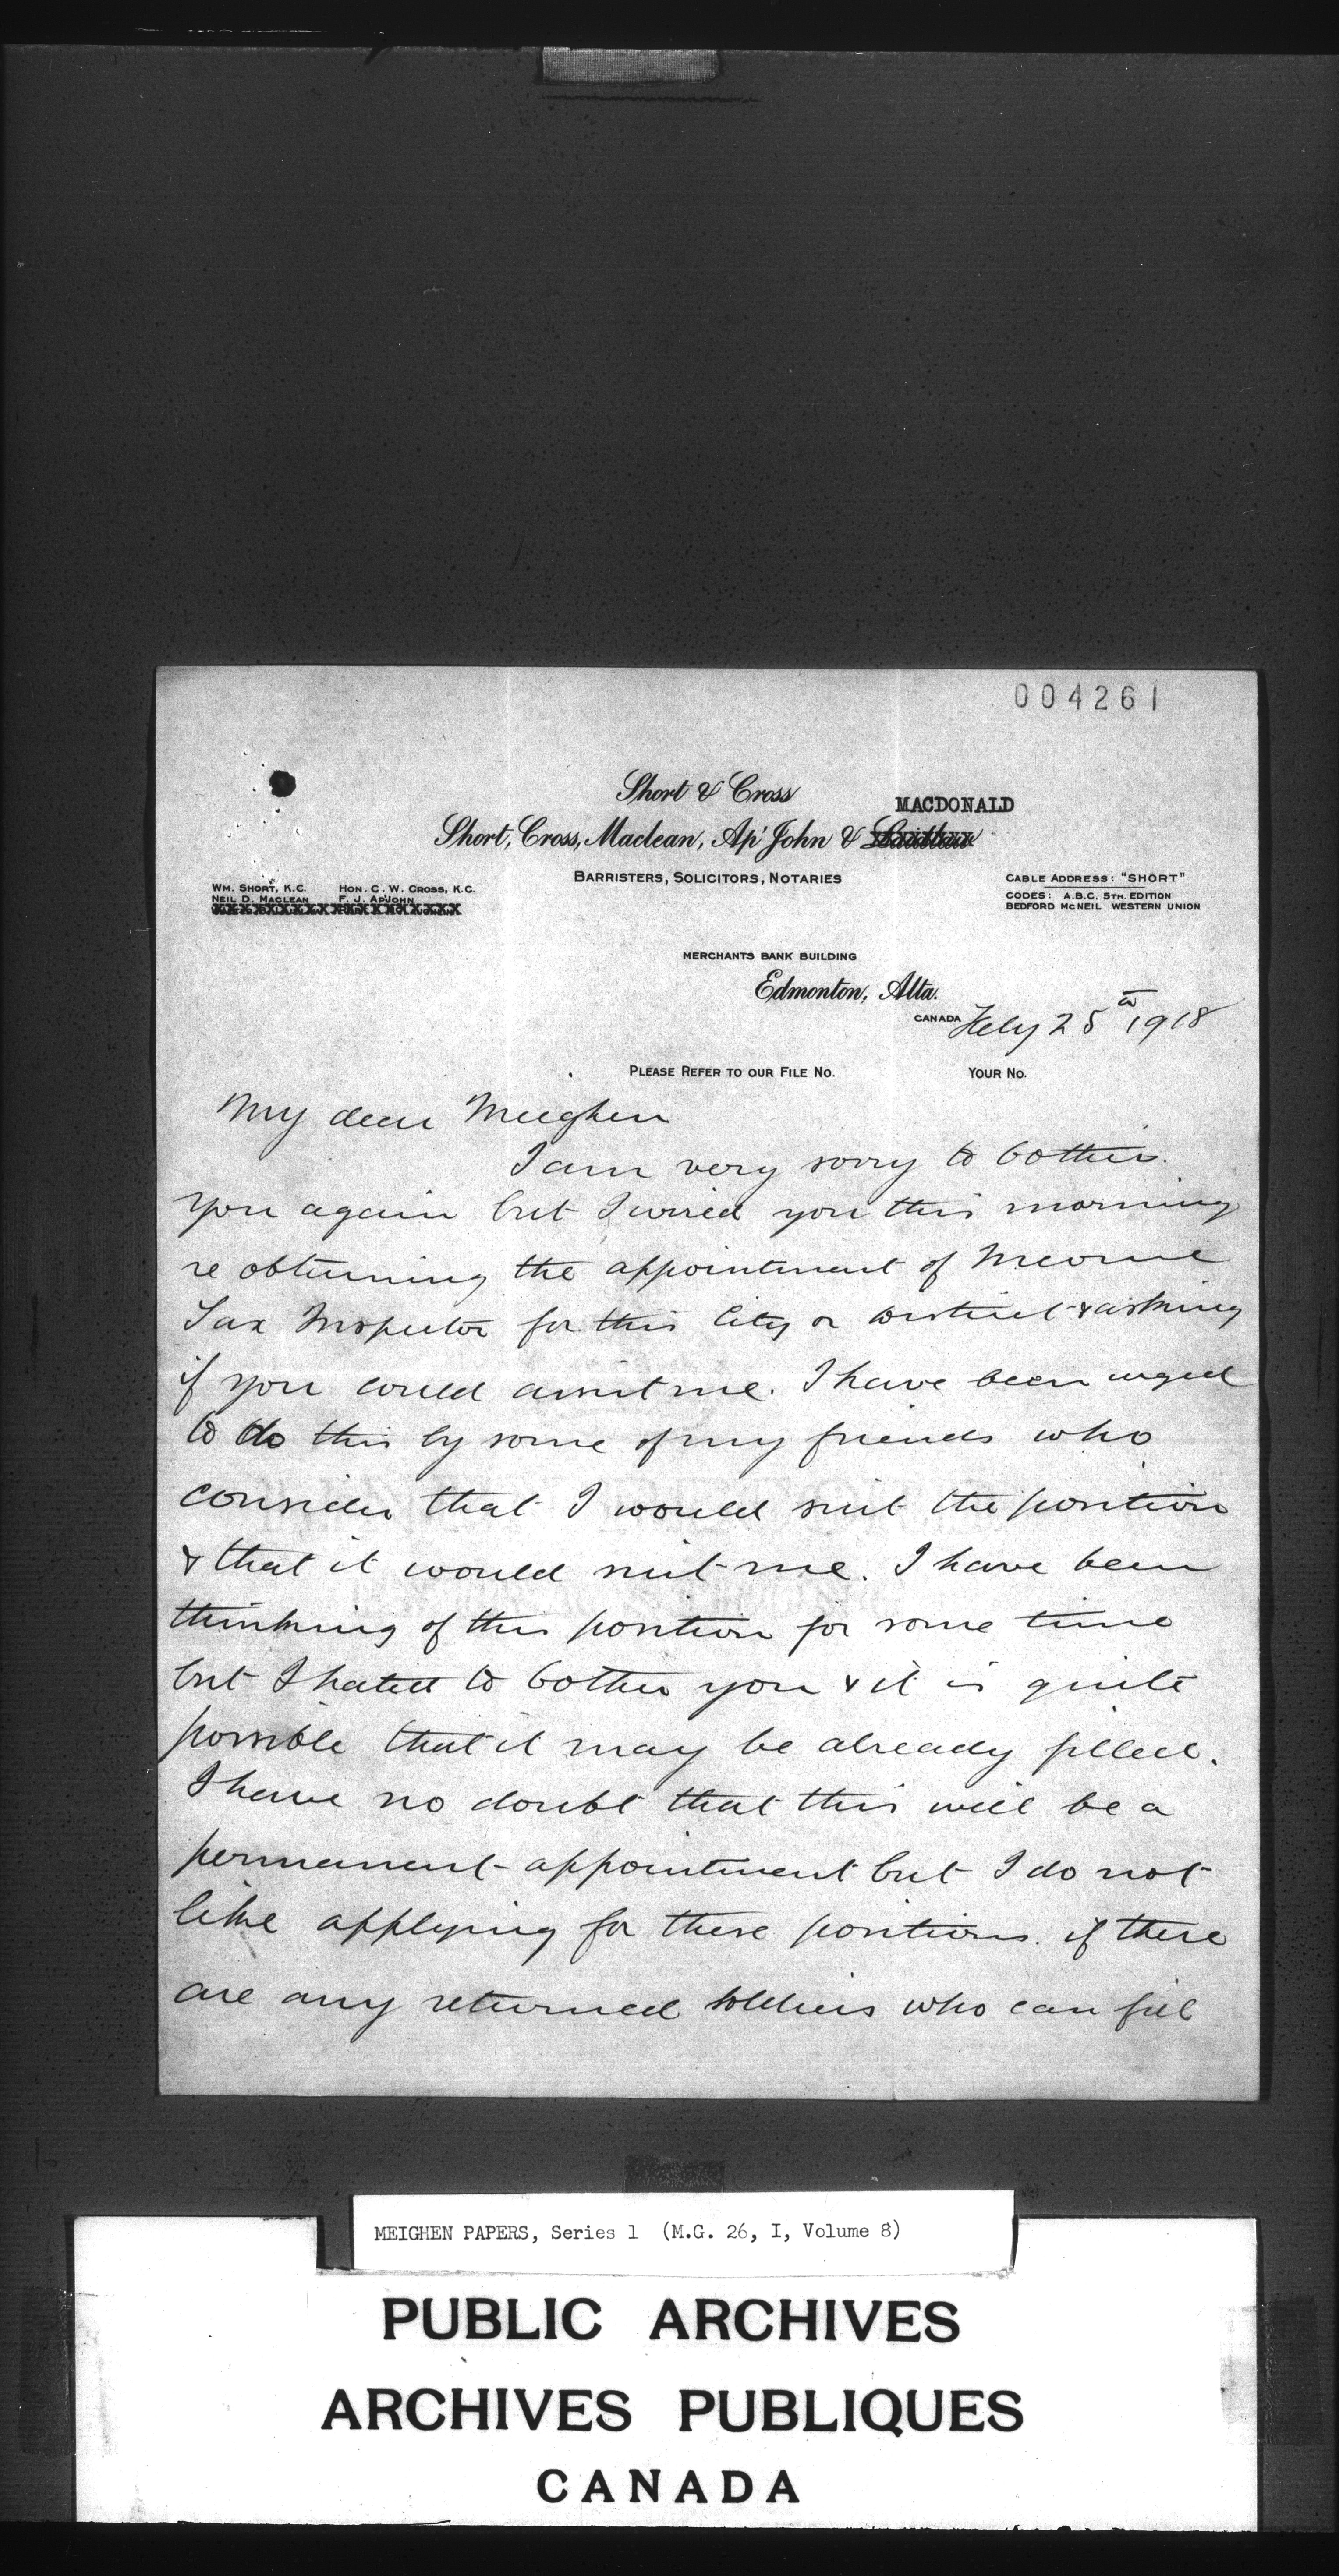 004261
Short & Cross
MACDONALD
Short, Cross, Maclean, Ap'John & Laidlaw
BARRISTERS, SOLICITORS, NOTARIES
WM. SHORT, K.C. HON. C. W. CROSS, K.C.
NEIL D. MACLEAN F. J. AP'JOHN
CABLE ADDRESS: "SHORT"
CODES: A.B.C. 5TH. EDITION
BEDFORD MCNEIL WESTERN UNION
MERCHANTS BANK BUILDING
Edmonton, Alta.
CANADA Feby 25th 1918
PLEASE REFER TO OUR FILE NO. YOUR NO.
My dear Meighen
I am very sorry to bother
you again but I wired you this morning
re obtaining the appointment of Income
Tax Inspector for this City or district & asking
if you could assist me. I have been urged
to do this by some of my friends who
consider that I would suit the position
& that it would suit me. I have been
thinking of this position for some time
but I hated to bother you & it is quite
possible that it may be already filled.
I have no doubt that this will be a
permanent appointment but I do not
like applying for these positions if there
are any returned soldiers who can fill
MEIGHEN PAPERS, Series 1 (M.G. 26, I, Volume 8)
PUBLIC ARCHIVES
ARCHIVES PUBLIQUES
CANADA